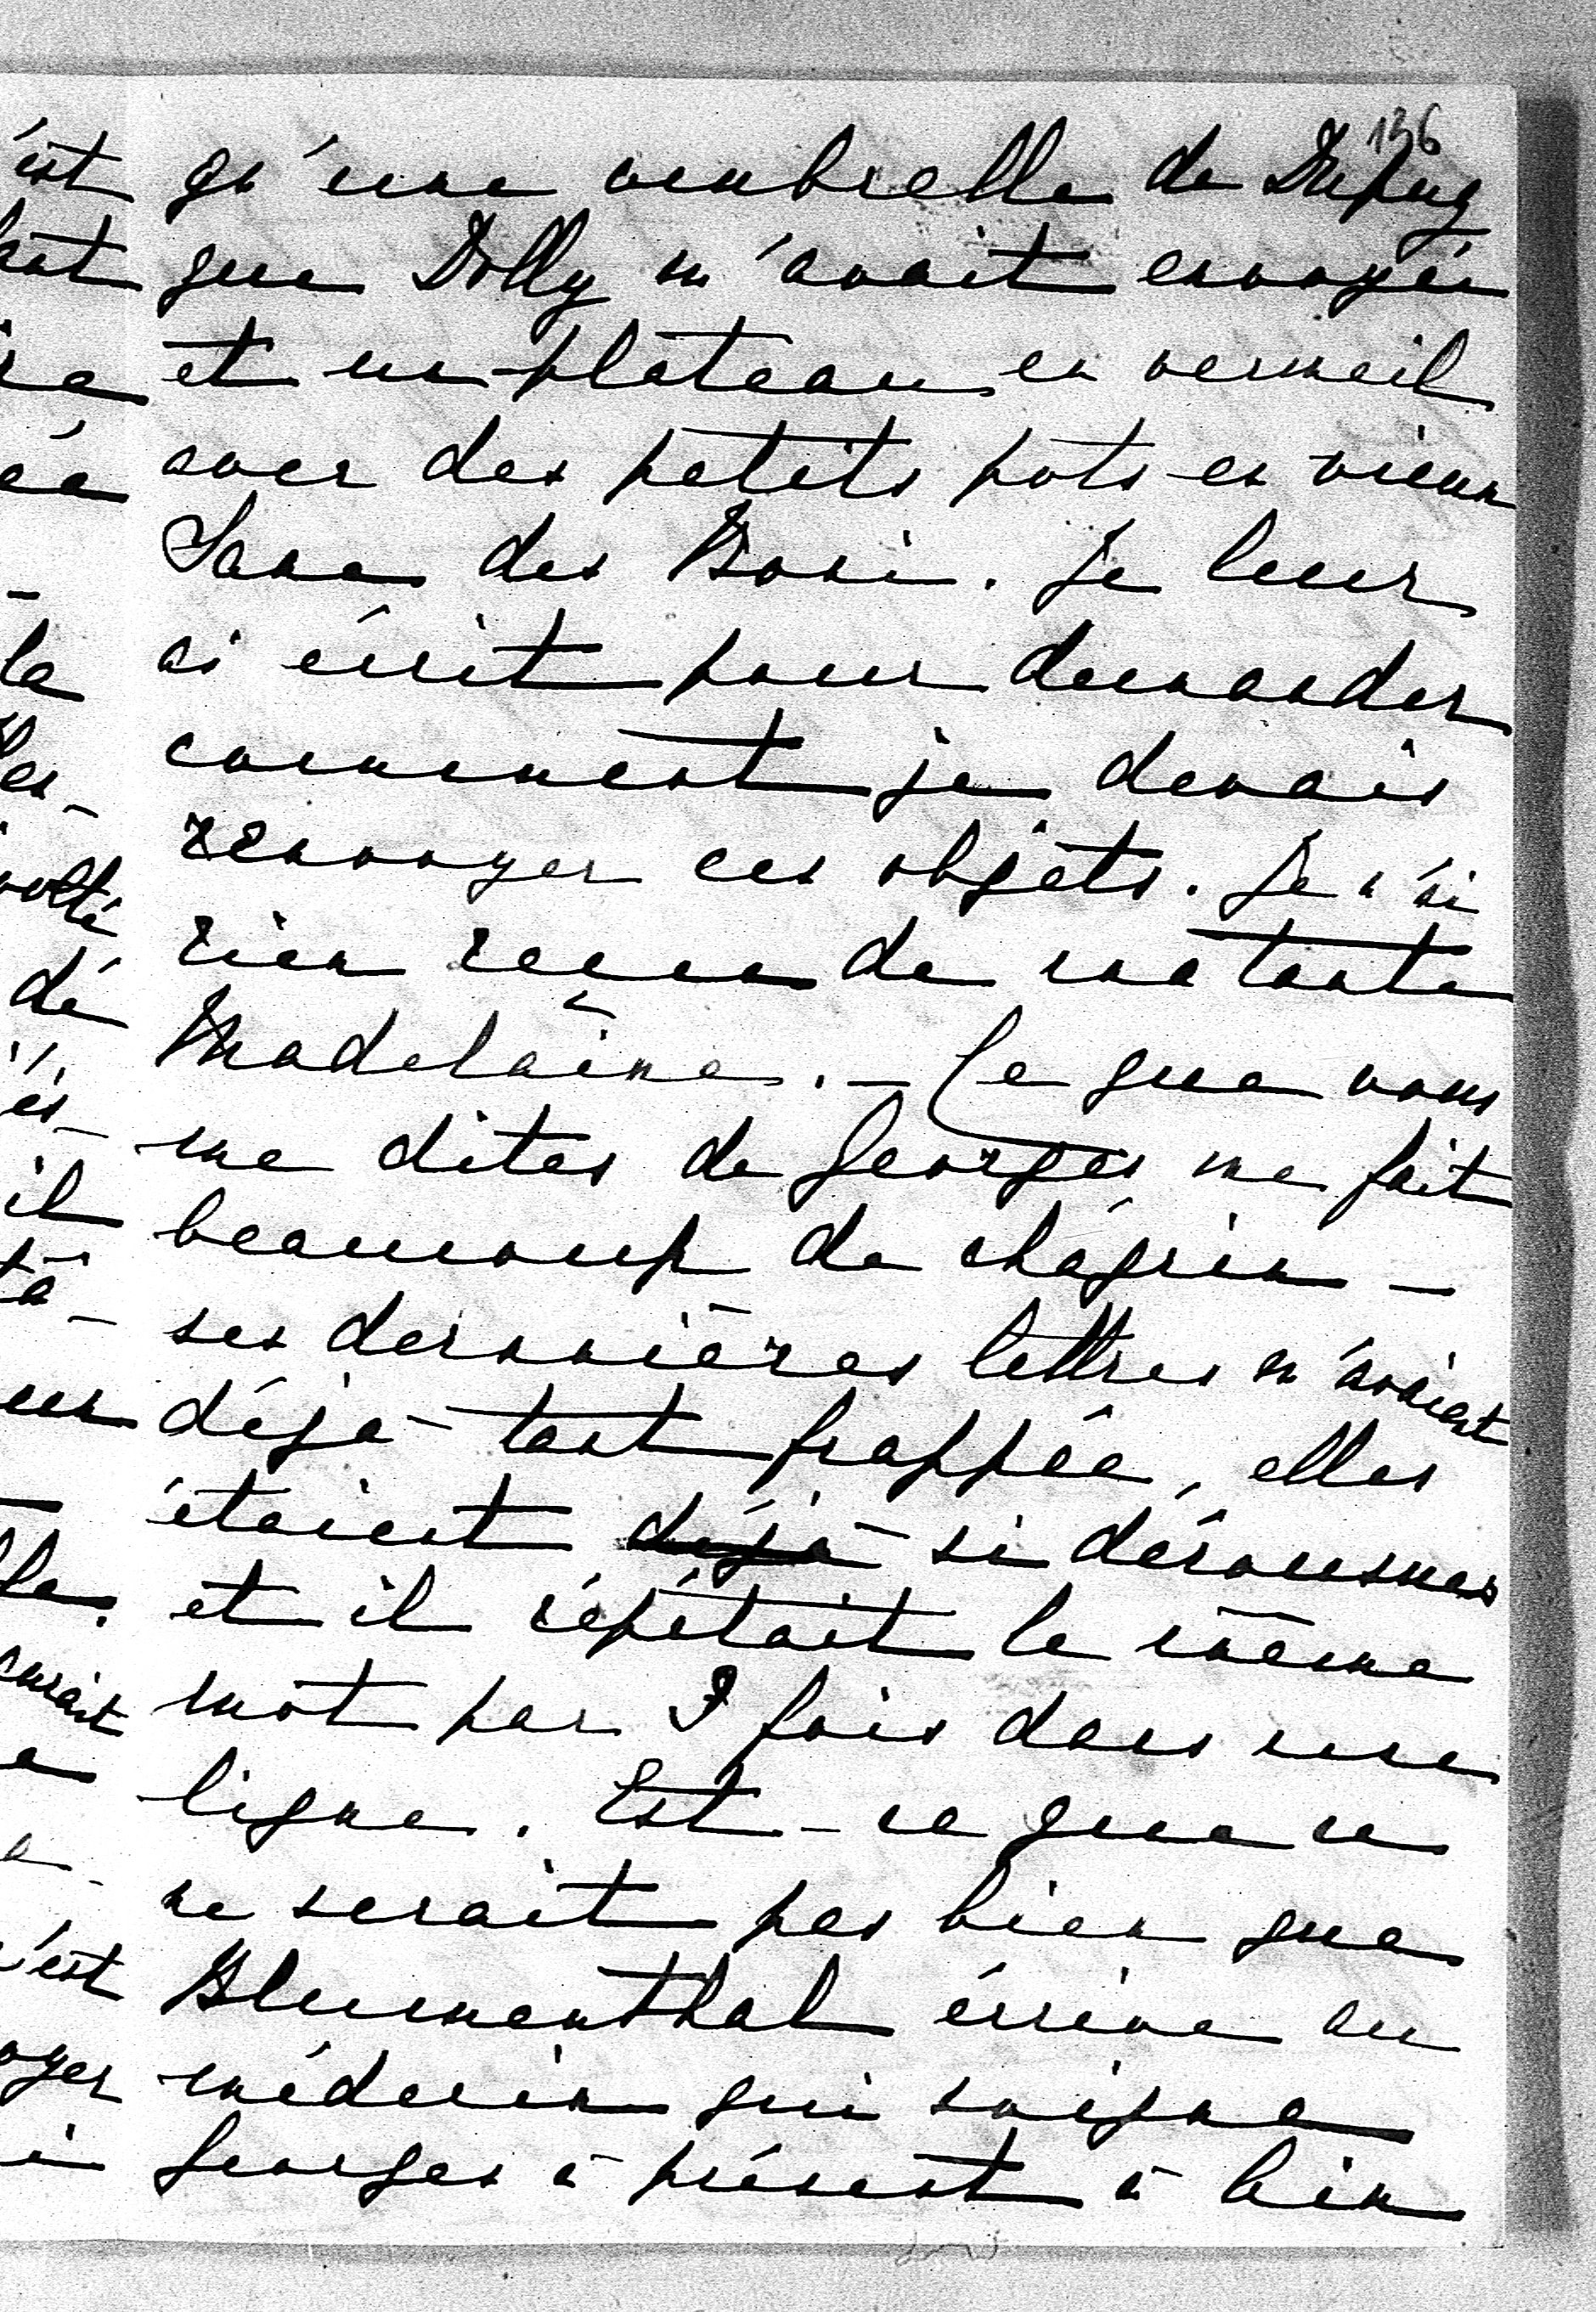 136
qu'une ombrelle de Dupuy
que Dolly m'avait envoyée
et un plateau en vermeil
avec des petits pots en vieux
Saxe des Boni. Je leur
ai écrit pour demander
comment je devais
renvoyer ces objets. Je n'ai
rien reçu de ma tante
Madelaine. – Ce que vous
me dites de Georges me fait
beaucoup de chagrin –
ses dernières lettres m'avaient
déjà tant frappée, elles
étaient déjà si décousues
et il répétait le même
mot par 3 fois dans une
ligne. Est-ce que ce
ne serait pas bien que
Blumenthal écrive au
médecin qui soigne
Georges à présent à bien